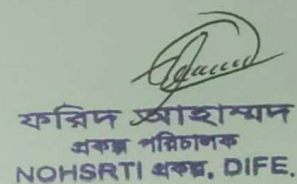 ফরিদ আহাম্মদ
প্রকল্প পরিচালক
NOHSRTI প্রকল্প, DIFE.